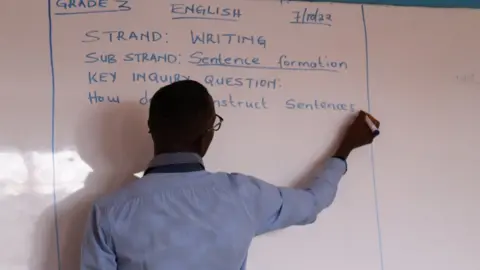 GRADE 3 ENGLISH 7/10/22
STRAND: WRITING
SUB STRAND: Sentence formation
KEY INQUIRY QUESTION:
How construct Sentences